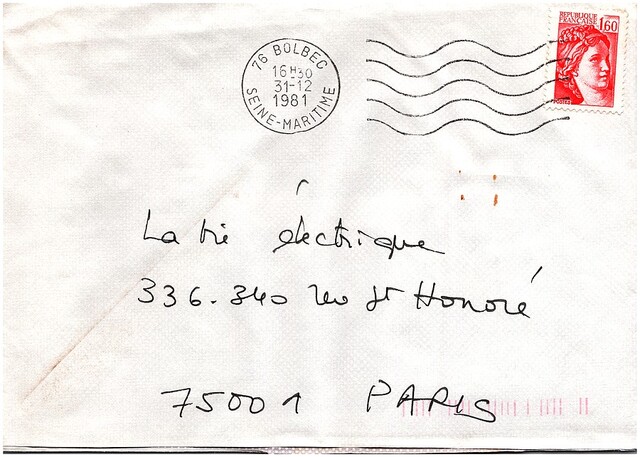 76 BOLBEC
16H30
31-12
1981
SEINE-MARITIME
REPUBLIQUE
FRANÇAISE
1,60
POSTES
La vie électrique
336-340 rue St Honoré
75001 PARIS